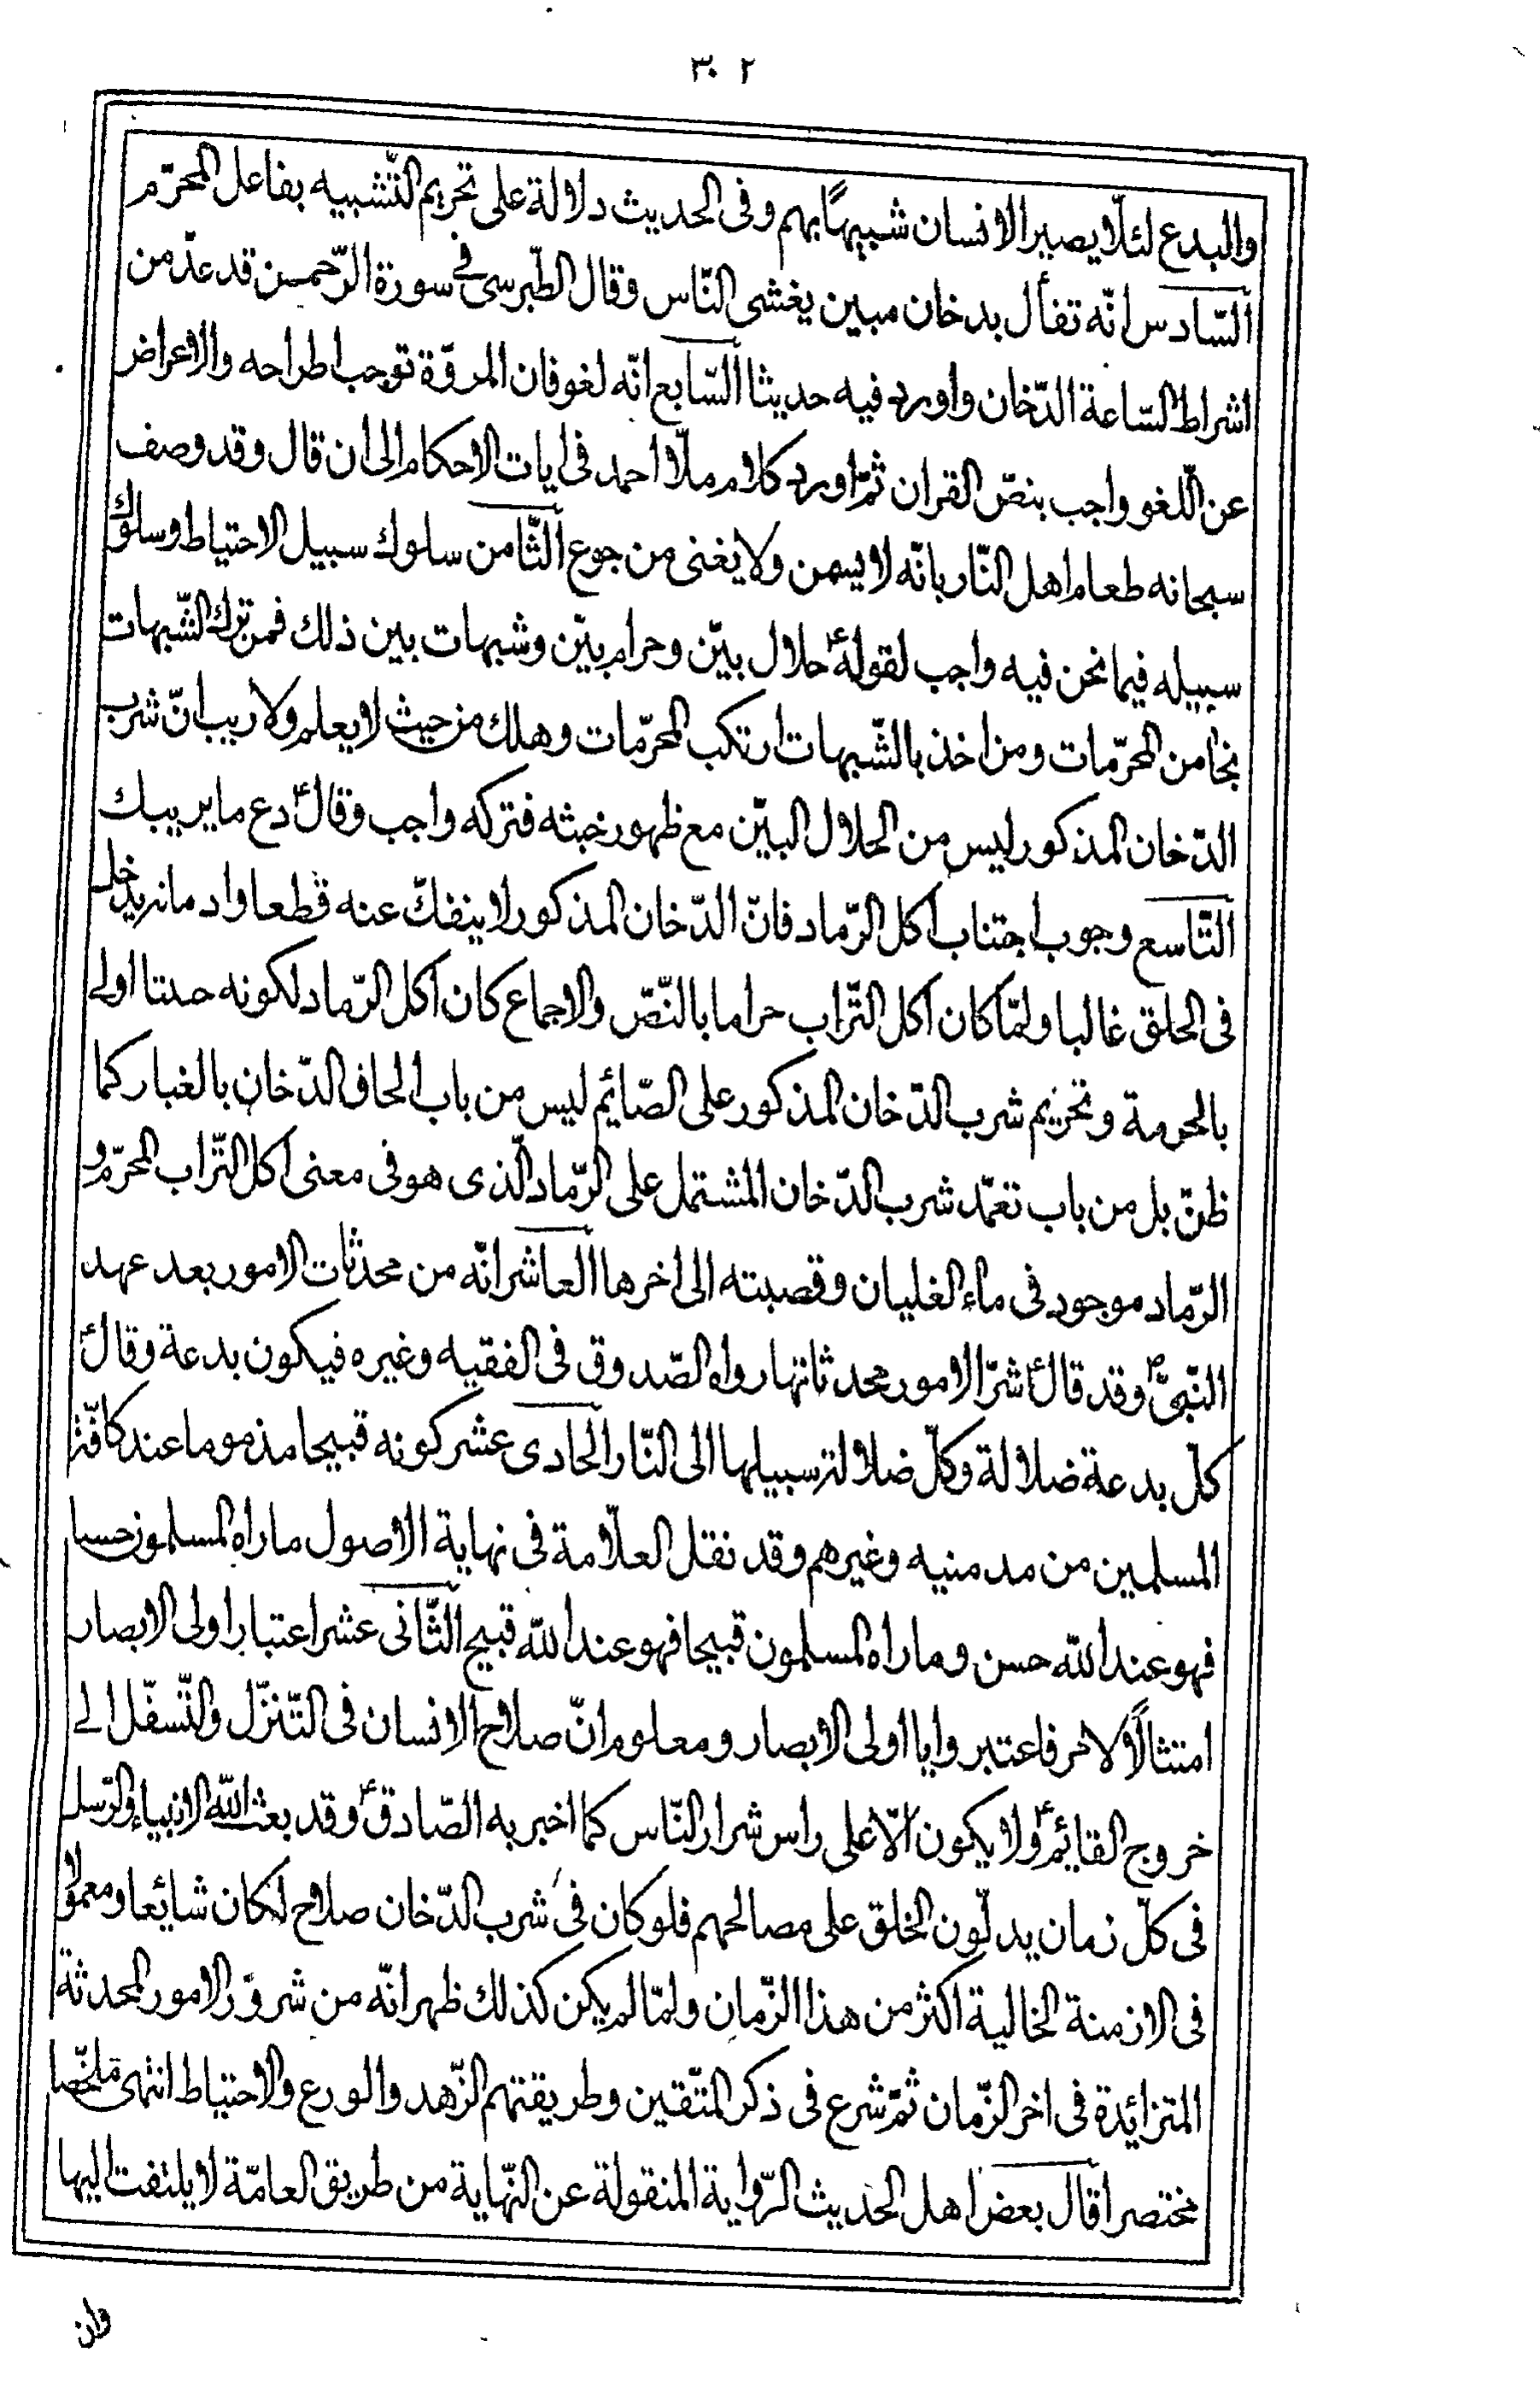 ٣٠٢
والبدع لئلّا يصير الانسان شبيهًا بهم وفى الحديث دلالة على تحريم التّشبيه بفاعل المحرّم
السّادس انّه تفأل بدخان مبين يغشى النّاس وقال الطّبرسى فى سورة الرّحمن قد عدّ من
اشراط السّاعة الدّخان واورد فيه حديثا السّابع انّه لغو فان المروّة توجب اطراحه والاعراض
عن اللّغو واجب بنصّ القران ثمّ اورد كلام ملّا احمد فى ايات الاحكام الى ان قال وقد وصف
سبحانه طعام اهل النّار بانّه لا يسمن ولا يغنى من جوع الثّامن سلوك سبيل الاحتياط وسلوك
سبيله فيما نحن فيه واجب لقوله ع حلال بيّن وحرام بيّن وشبهات بين ذلك فمن ترك الشّبهات
نجا من المحرّمات ومن اخذ بالشّبهات ارتكب المحرّمات وهلك من حيث لا يعلم ولا ريب انّ شرب
الدّخان المذكور ليس من الحلال البيّن مع ظهور خبثه فتركه واجب وقال ع دع ما يريبك
التّاسع وجوب اجتناب اكل الرّماد فانّ الدّخان المذكور لا ينفكّ عنه قطعا وادمانه يدخل
فى الحلق غالبا ولمّا كان اكل التّراب حراما بالنّصّ والاجماع كان اكل الرّماد لكونه حدثا اولى
بالحرمة وتحريم شرب الدّخان المذكور على الصّائم ليس من باب الحاق الدّخان بالغبار كما
ظنّ بل من باب تعمّد شرب الدّخان المشتمل على الرّماد الّذى هو فى معنى اكل التّراب المحرّم و
الرّماد موجود فى ماء الغليان وقصبته الى اخرها العاشر انّه من محدثات الامور بعد عهد
النّبىّ ص وقد قال ع شرّ الامور محدثاتها رواه الصّدوق فى الفقيه وغيره فيكون بدعة وقال ع
كلّ بدعة ضلالة وكلّ ضلالة سبيلها الى النّار الحادى عشر كونه قبيحا مذموما عند كافّة
المسلمين من مدمنيه وغيرهم وقد نقل العلّامة فى نهاية الاصول ما راه المسلمون حسنا
فهو عند الله حسن وما راه المسلمون قبيحا فهو عند الله قبيح الثّانى عشر اعتبار اولى الابصار
امتثالًا لامر فاعتبروا يا اولى الابصار ومعلوم انّ صلاح الانسان فى التّنزّل والتّسفّل الى
خروج القايم ع ولا يكون الّا على راس شرار النّاس كما اخبر به الصّادق ع وقد بعث الله الانبياء والرّسل
فى كلّ زمان يدلّون الخلق على مصالحهم فلو كان فى شرب الدّخان صلاح لكان شايعا ومعمولا
فى الازمنة الخالية اكثر من هذا الزّمان ولمّا لم يكن كذلك ظهر انّه من شرور الامور المحدثة
المتزائدة فى اخر الزّمان ثمّ شرع فى ذكر المتّقين وطريقتهم الزّهد والورع والاحتياط انتهى ملخّصا
مختصرا قال بعض اهل الحديث الرّواية المنقولة عن النّهاية من طريق العامّة لا يلتفت اليها
وان